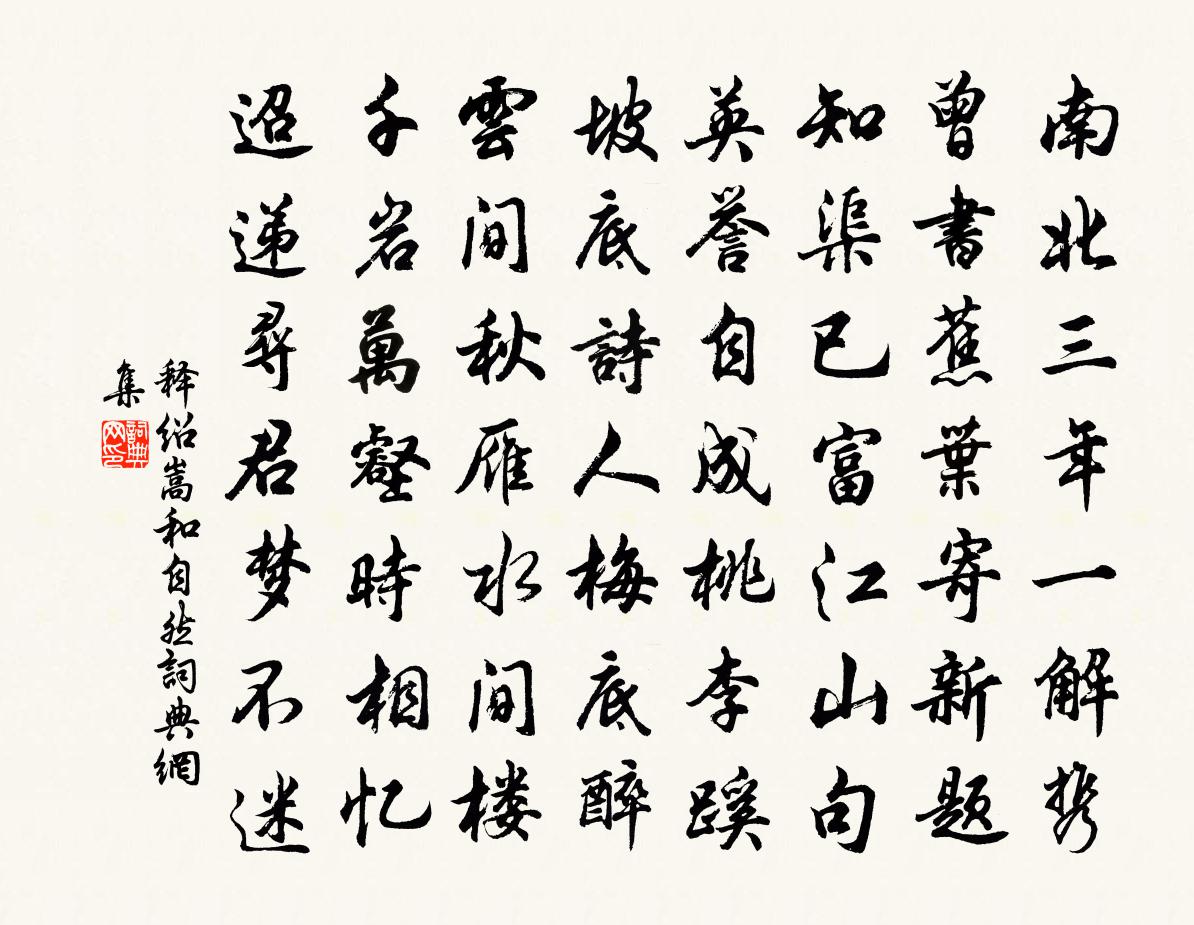 南北三年一解携
曾書蕉葉寄新题
知渠已富江山句
英誉自成桃李蹊
坡底詩人梅底醉
雲间秋雁水间楼
千岩萬壑時相忆
迢递尋君梦不迷
释绍嵩和自然詞典網
集
詞典网印